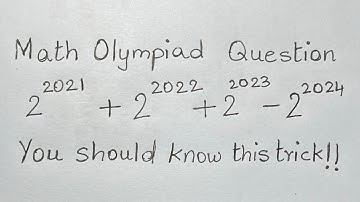 Math Olympiad Question
2²⁰²¹ + 2²⁰²² + 2²⁰²³ - 2²⁰²⁴
You should know this trick!!